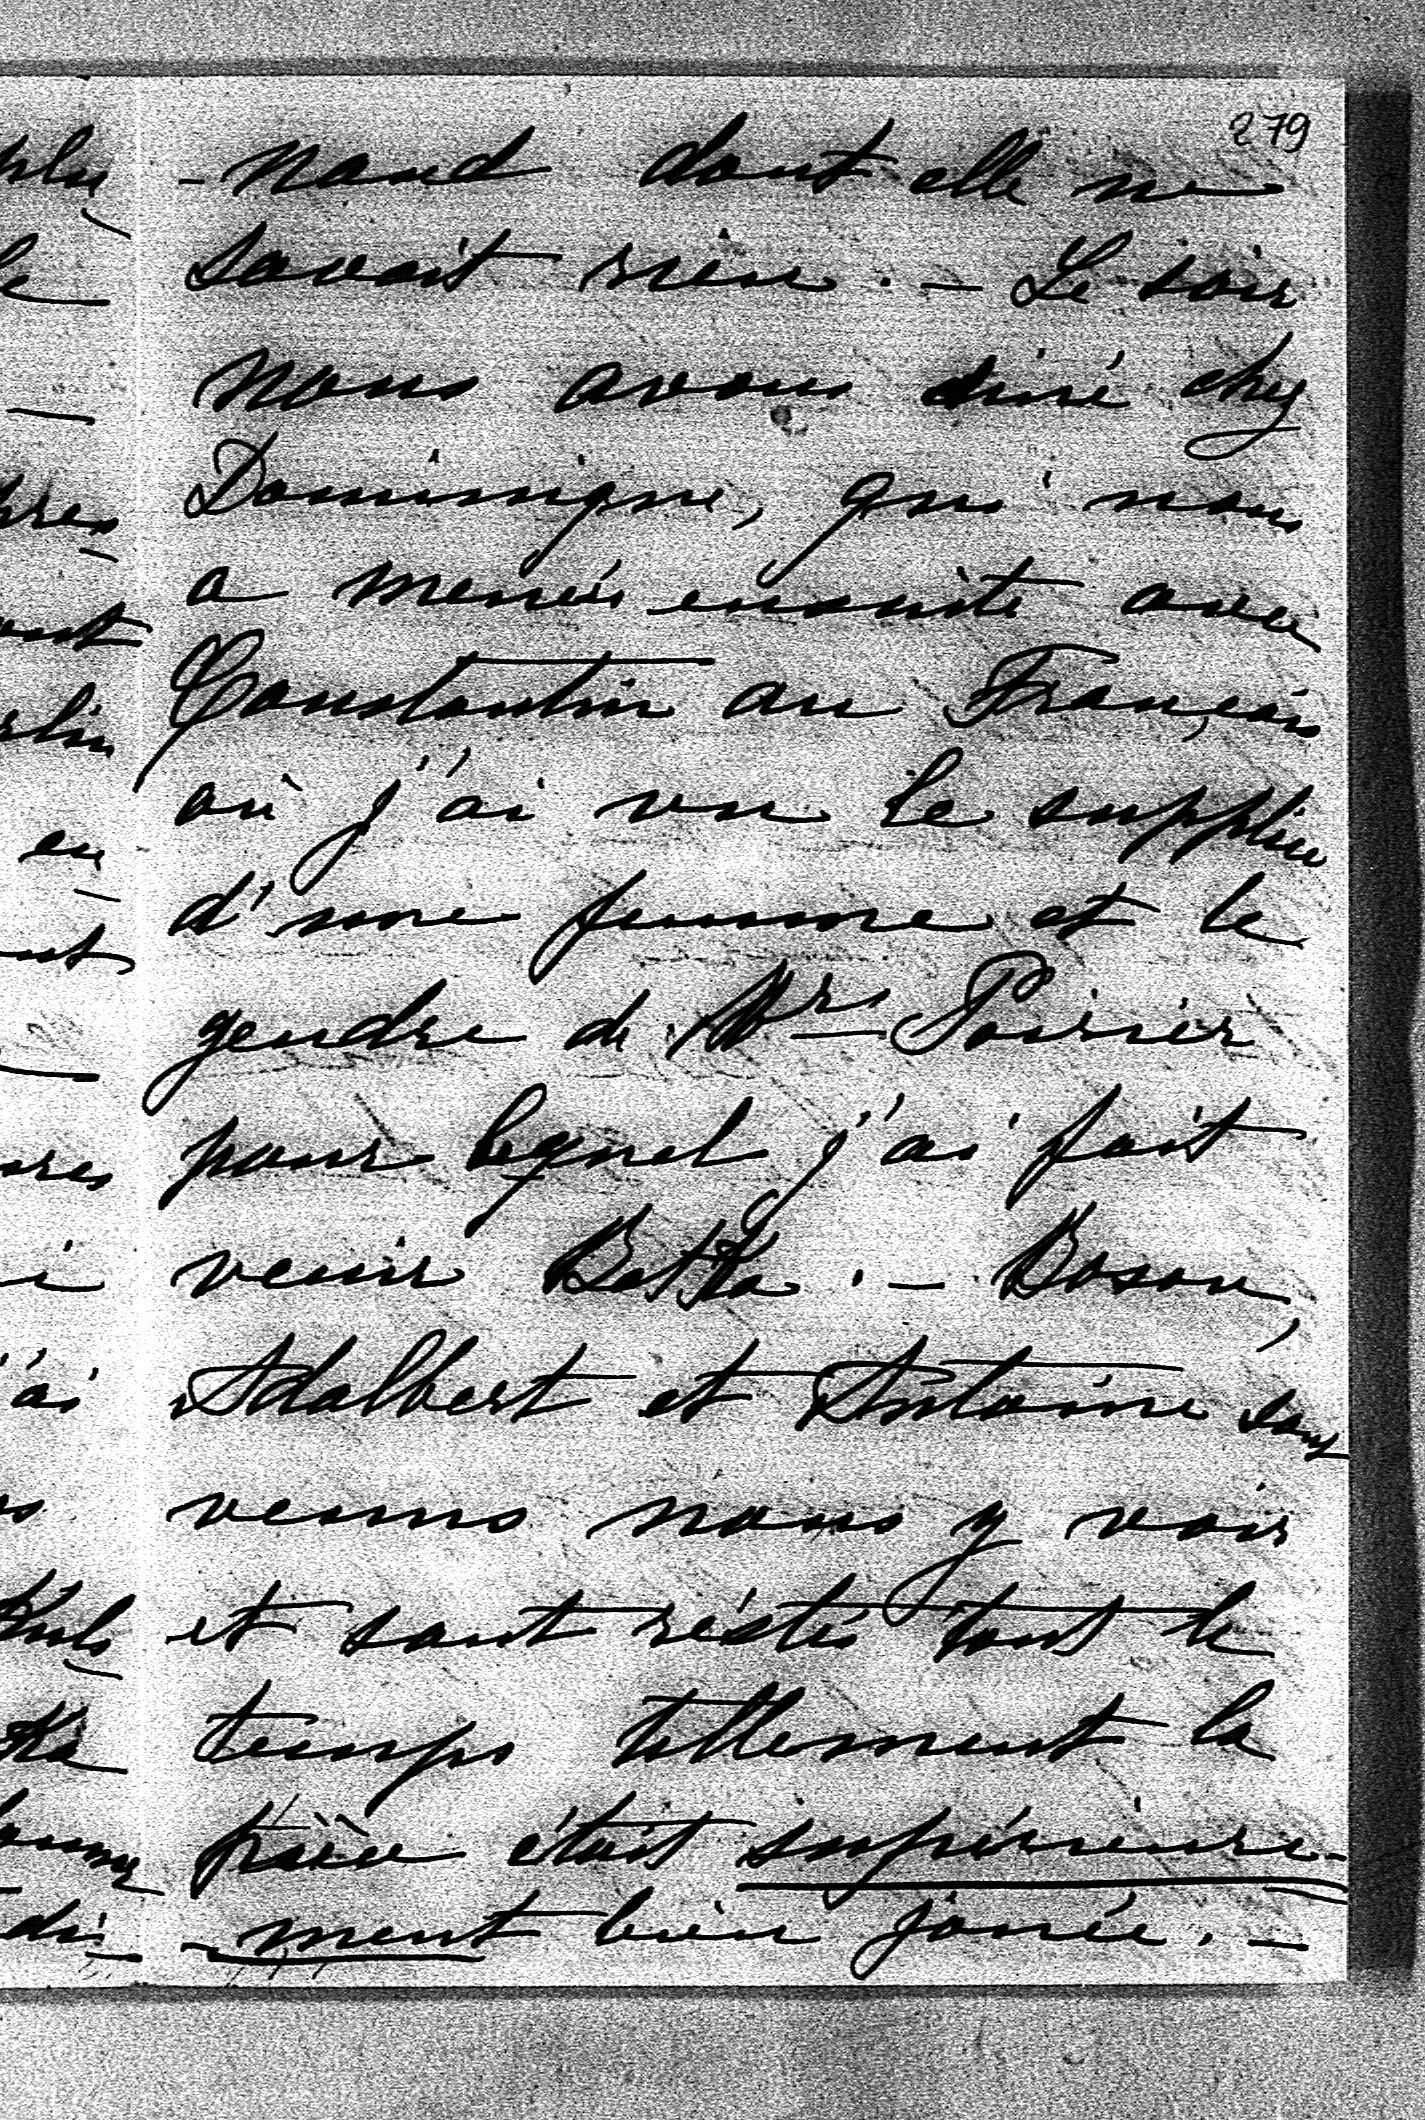 279
-nand dont elle ne
savait rien. – Le soir
nous avons diné chez
Dominique, qui nous
a menés ensuite avec
Constantin au Français
où j'ai vu le supplice
d'une femme et le
gendre de Mr Poirier
pour lequel j'ai fait
venir Betka. – Boson,
Adalbert et Antoine sont
venus nous y voir
et sont restés tout le
temps tellement la
pièce était supérieure-
-ment bien jouée. –